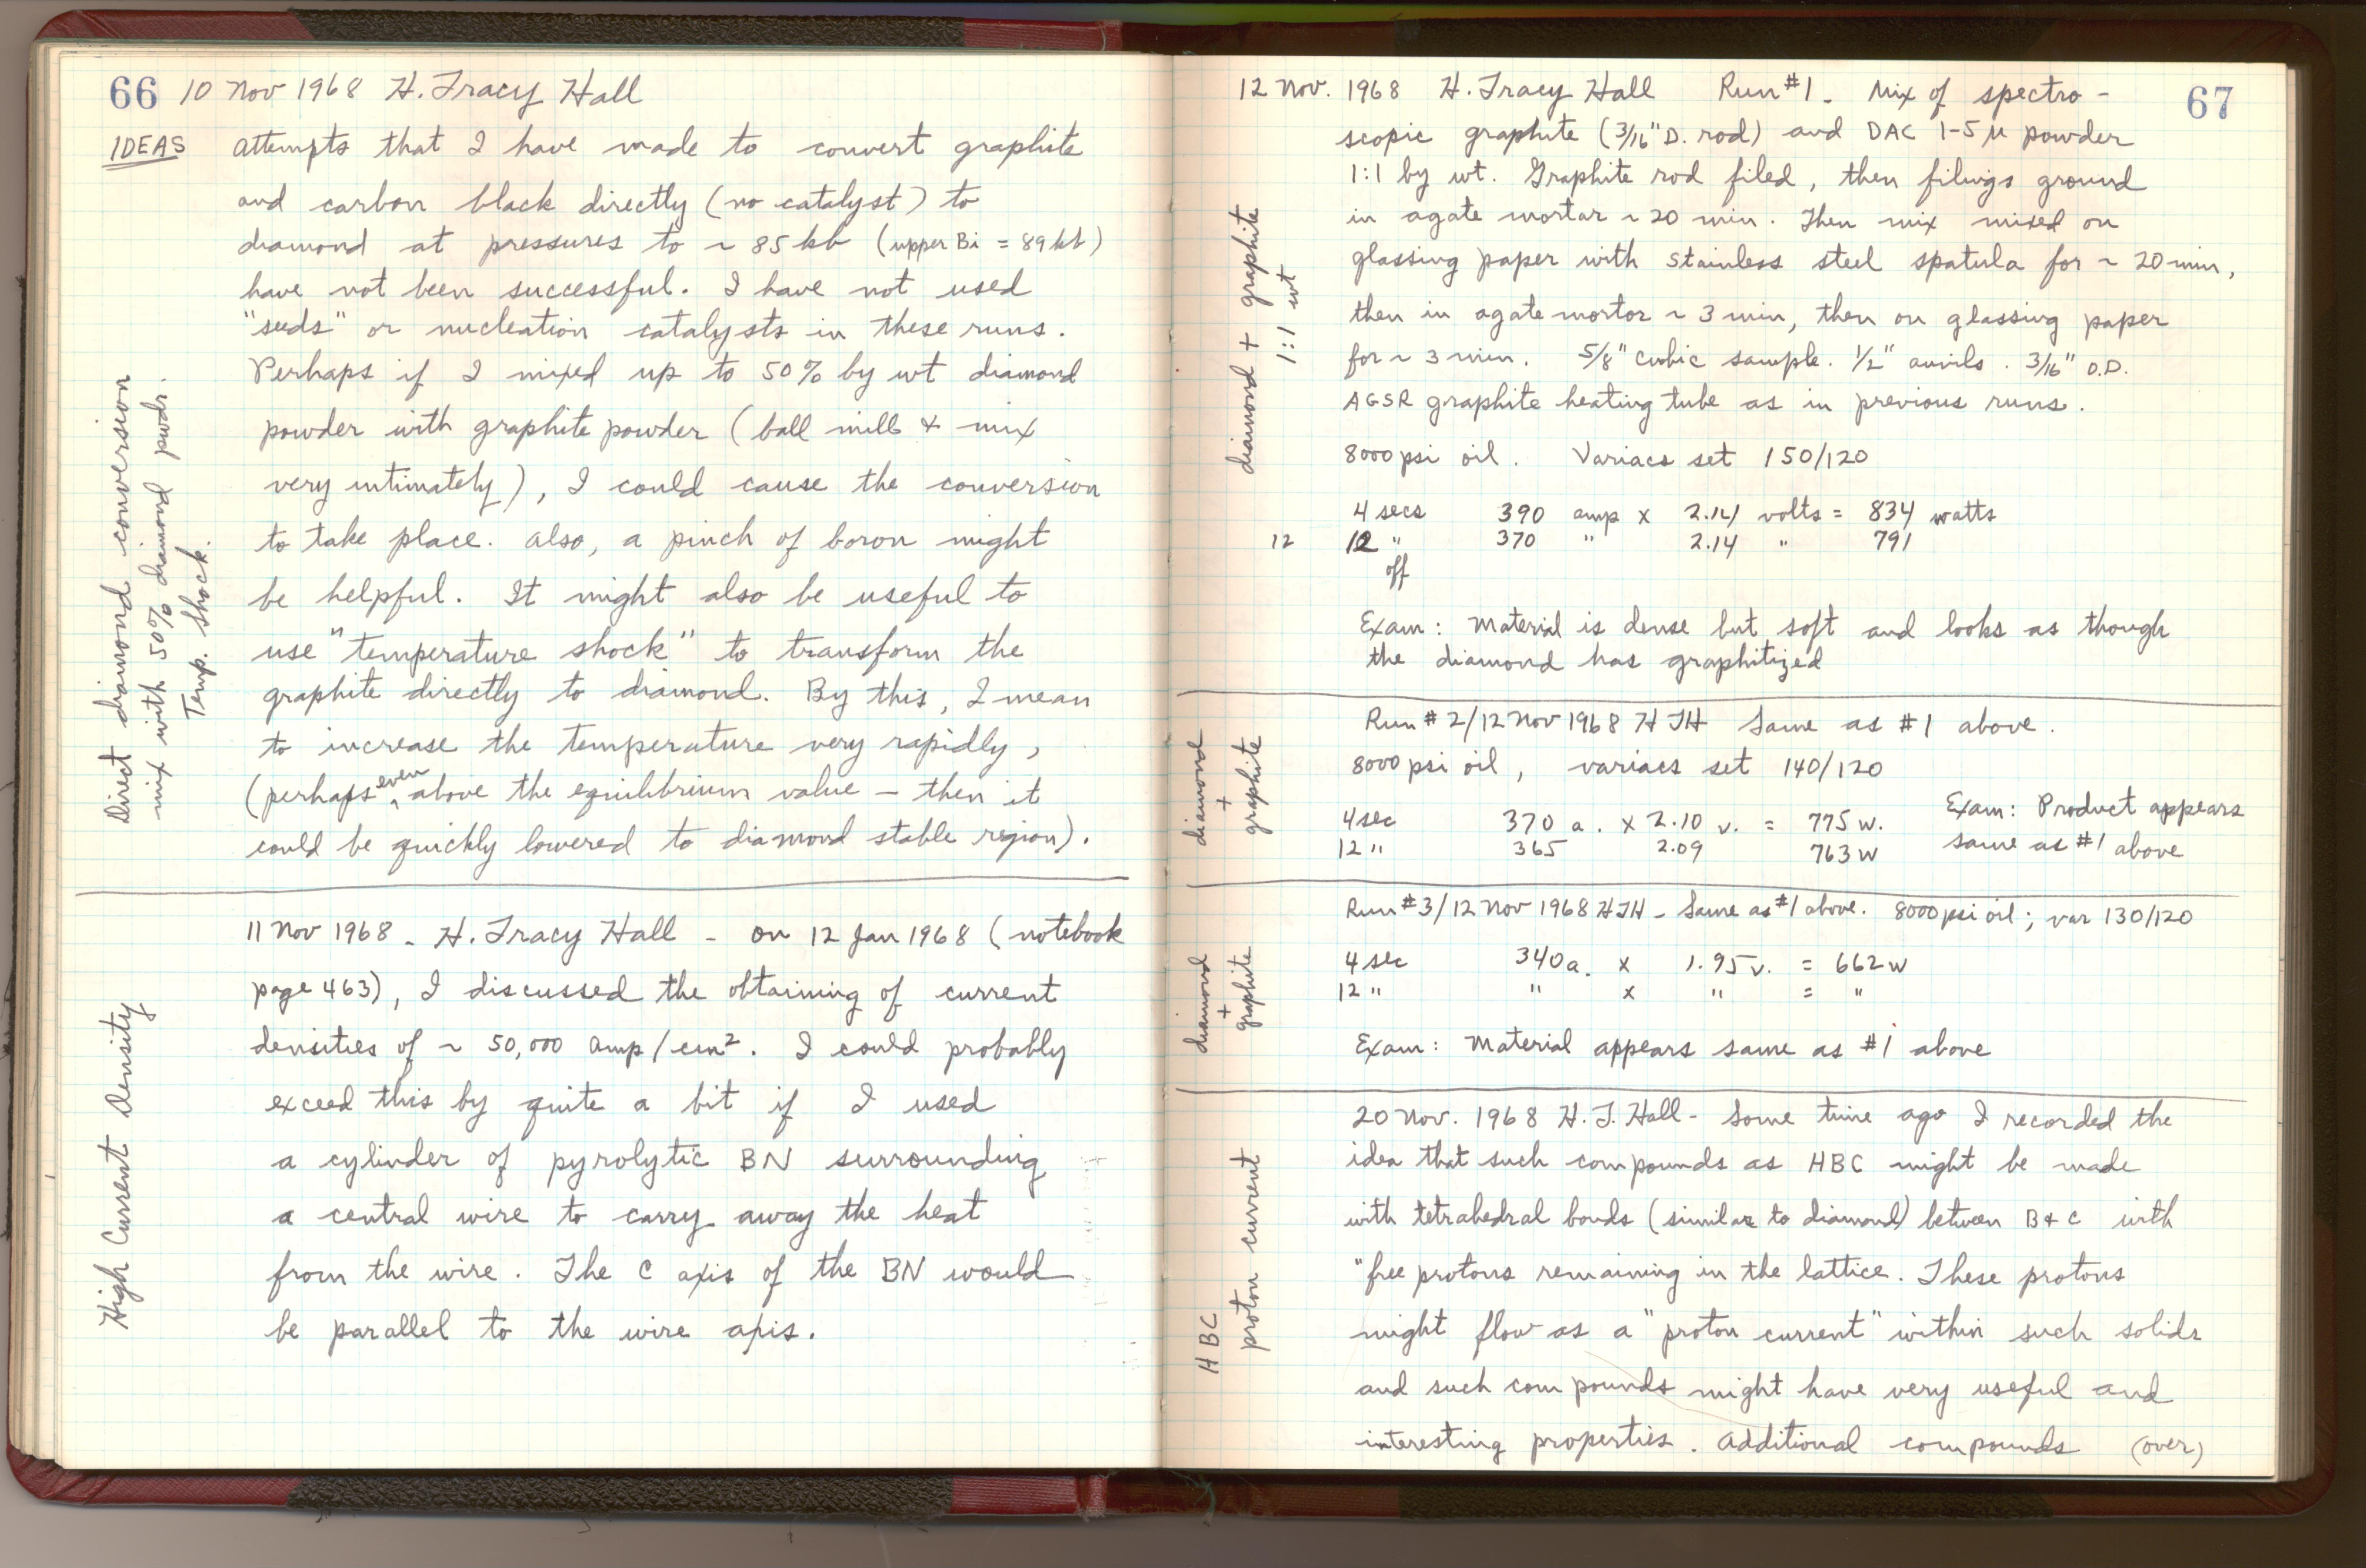 66 10 Nov 1968 H. Tracy Hall
IDEAS attempts that I have made to convert graphite
and carbon black directly (no catalyst) to
diamond at pressures to ~ 85 kb (upper Bi = 89 kb)
have not been successful. I have not used
"seeds" or nucleation catalysts in these runs.
Perhaps if I mixed up to 50% by wt diamond
powder with graphite powder (ball mill & mix
very intimately), I could cause the conversion
to take place. Also, a pinch of boron might
be helpful. It might also be useful to
use "temperature shock" to transform the
graphite directly to diamond. By this, I mean
to increase the temperature very rapidly,
(perhaps even above the equilibrium value – then it
could be quickly lowered to diamond stable region).
Direct diamond conversion
mix with 50% diamond pwdr.
Temp. Shock.
11 Nov 1968 - H. Tracy Hall - on 12 Jan 1968 (notebook
page 463), I discussed the obtaining of current
densities of ~ 50,000 amp/cm². I could probably
exceed this by quite a bit if I used
a cylinder of pyrolytic BN surrounding
a central wire to carry away the heat
from the wire. The C axis of the BN would
be parallel to the wire axis.
High Current Density
12 Nov. 1968 H. Tracy Hall Run #1 - Mix of spectro- 67
scopic graphite (3/16" D. rod) and DAC 1-5 µ powder
1:1 by wt. Graphite rod filed, then filings ground
in agate mortar ~ 20 min. Then mix mixed on
glassing paper with stainless steel spatula for ~ 20 min,
then in agate mortor ~ 3 min, then on glassing paper
for ~ 3 min. 5/8" cubic sample. 1/2" anvils. 3/16" O.D.
AGSR graphite heating tube as in previous runs.
8000 psi oil. Variacs set 150/120
4 secs 390 amp x 2.14 volts = 834 watts
12 12 " 370 " 2.14 " 791
off
Exam: Material is dense but soft and looks as though
the diamond has graphitized
diamond + graphite
1:1 wt
Run #2/12 Nov 1968 HTH Same as #1 above.
8000 psi oil, variacs set 140/120
4 sec 370 a. x 2.10 v. = 775 w. Exam: Product appears
12 " 365 2.09 763 w same as #1 above
diamond
+
graphite
Run #3/12 Nov 1968 HTH - Same as #1 above. 8000 psi oil; var 130/120
4 sec 340 a. x 1.95 v. = 662 w
12 " " x " = "
Exam: Material appears same as #1 above
diamond
+
graphite
20 Nov. 1968 H. T. Hall - Some time ago I recorded the
idea that such compounds as HBC might be made
with tetrahedral bonds (similar to diamond) between B & C with
"free protons remaining in the lattice. These protons
might flow as a "proton current" within such solids
and such compounds might have very useful and
interesting properties. Additional compounds (over)
HBC
proton current